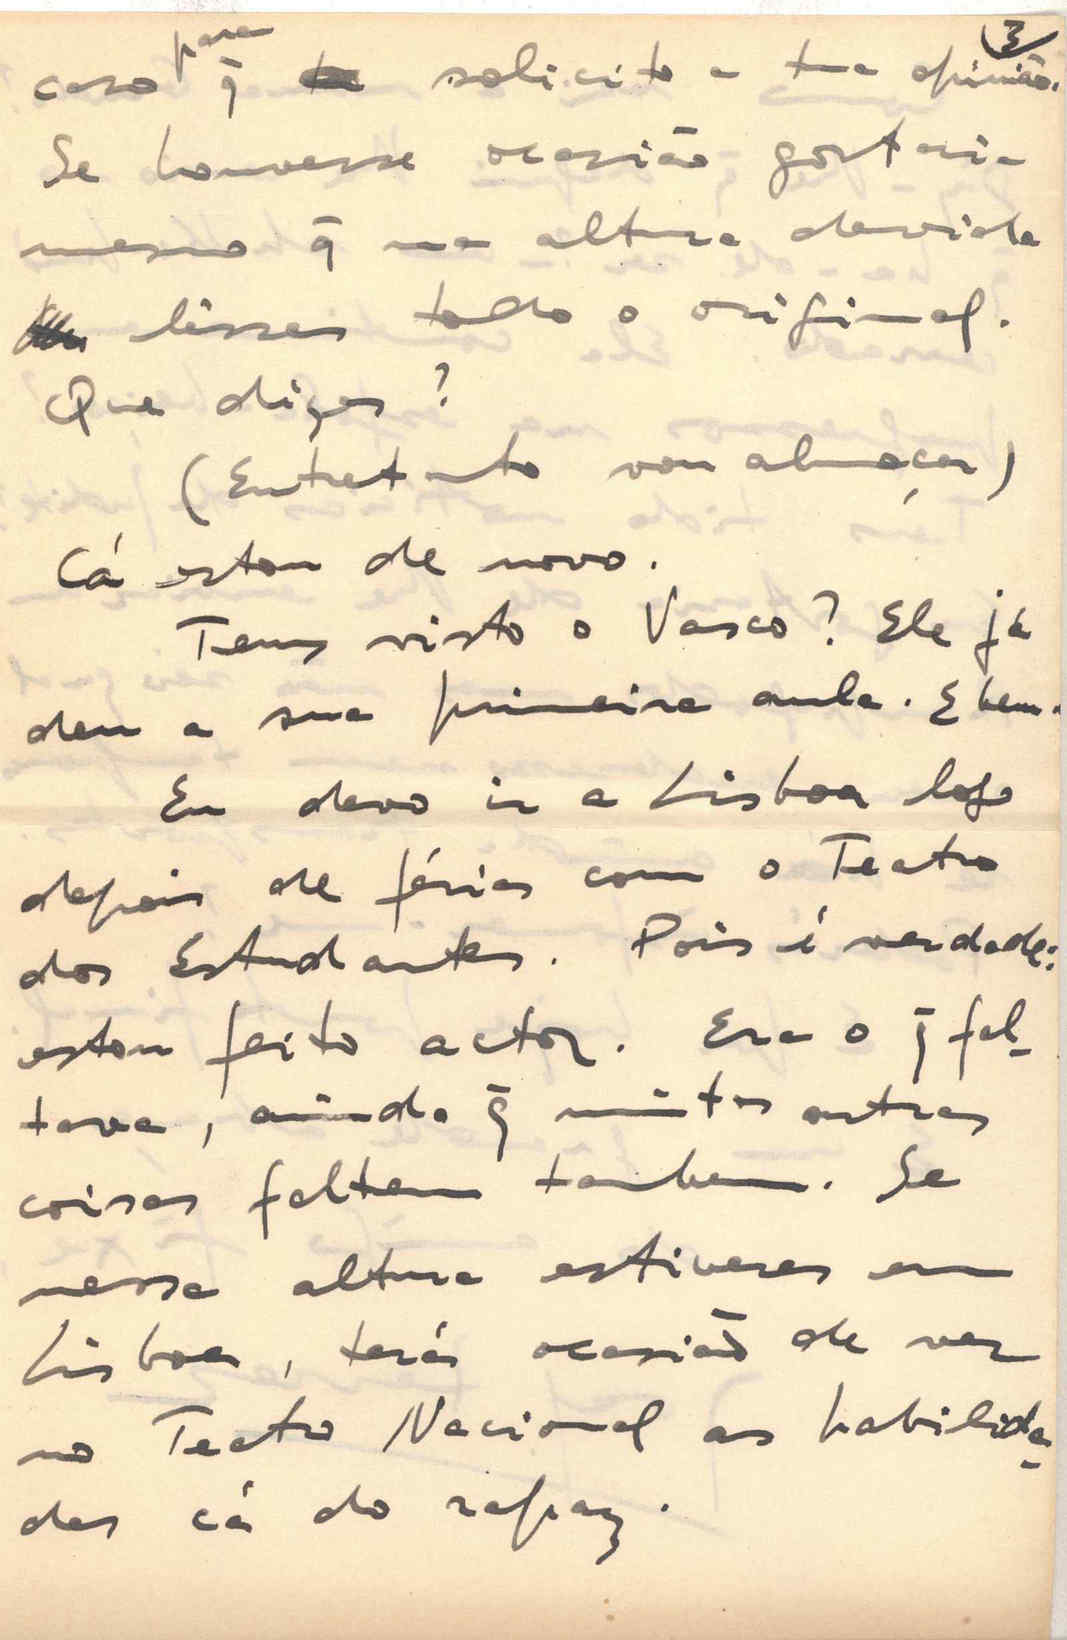 3
caso para q̄ solicito a tua opinião.
Se houvesse ocasião gostaria
mesmo q̄ na altura devida
lêsses todo o original.
Que dizes?
(Entretanto vou almoçar)
Cá estou de novo.
Tens visto o Vasco? Ele já
deu a sua primeira aula. E bem.
Eu devo ir a Lisboa logo
depois de férias com o Teatro
dos Estudantes. Pois é verdade:
estou feito actor. Era o q̄ fal-
tava, ainda q̄ muitas outras
coisas faltem tambem. Se
nessa altura estiveres em
Lisboa, terás ocasião de ver
no Teatro Nacional as habilida-
des cá do rapaz.